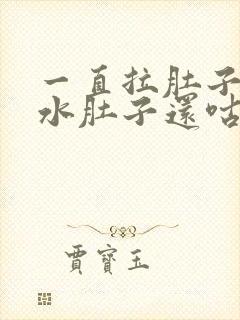 一直拉肚子
水肚子還咕
賈寶玉